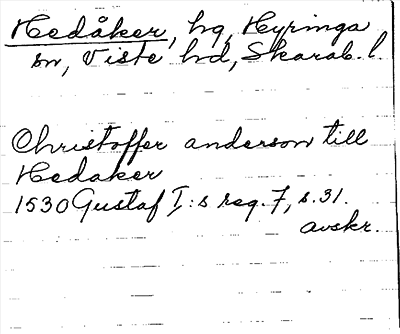 Hedåker, hg, Hyringa
sn, Viste hd, Skarab. l.
Christoffer anderson till
Hedaker
1530 Gustaf I:s reg. 7, s. 31.
avskr.